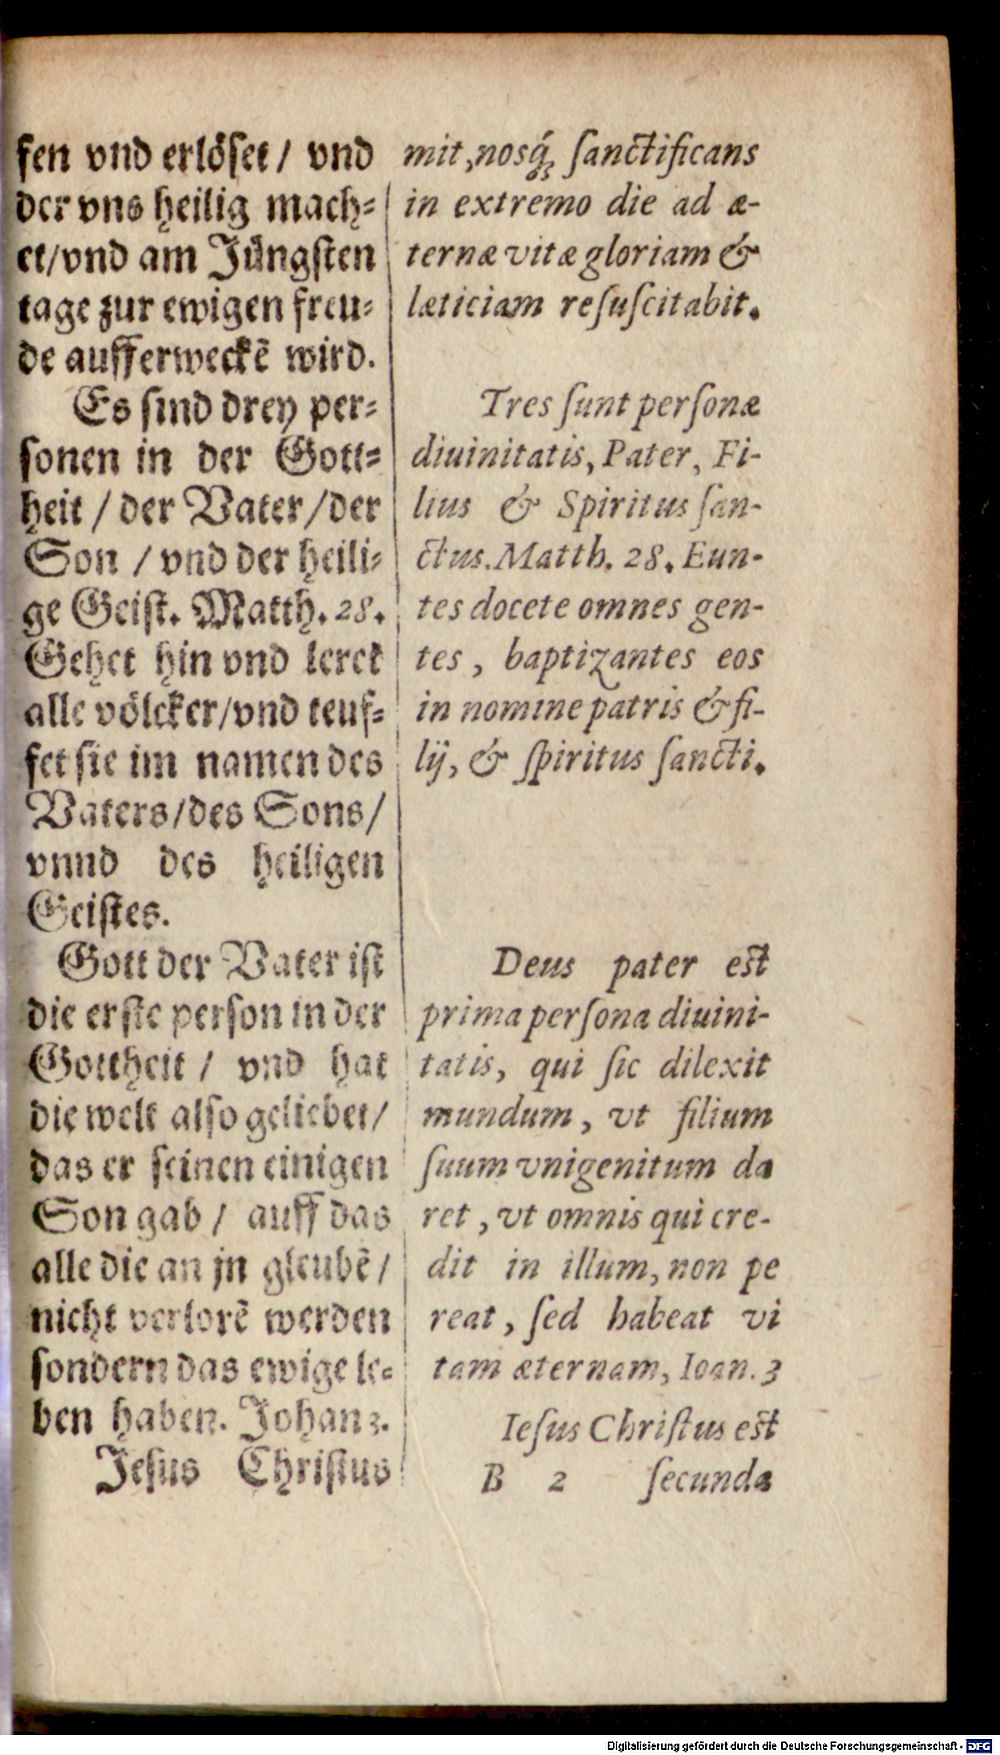 fen vnd erlöset / vnd
der vns heilig mach⸗
et/vnd am Jüngsten
tage zur ewigen freu⸗
de aufferweckẽ wird.
Es sind drey per⸗
sonen in der Gott⸗
heit / der Vater/der
Son / vnd der heili⸗
ge Geist. Matth. 28.
Gehet hin vnd leret
alle völcker/vnd teuf⸗
fet sie im namen des
Vaters/des Sons/
vnnd des heiligen
Geistes.
Gott der Vater ist
die erste person in der
Gottheit / vnd hat
die welt also geliebet/
das er seinen einigen
Son gab / auff das
alle die an jn gleubẽ /
nicht verlorẽ werden
sondern das ewige le⸗
ben haben. Johan 3.
Jesus Christus
mit, nosq́; ſanctificans
in extremo die ad æ-
ternæ vitæ gloriam &
læticiam reſuſcitabit.
Tres ſunt perſonæ
diuinitatis, Pater, Fi-
lius & Spiritus ſan-
ctus. Matth. 28. Eun-
tes docete omnes gen-
tes, baptizantes eos
in nomine patris & fi-
lij, & ſpiritus ſancti.
Deus pater eſt
prima perſona diuini-
tatis, qui ſic dilexit
mundum, vt filium
ſuum vnigenitum da
ret, vt omnis qui cre-
dit in illum, non pe
reat, ſed habeat vi
tam æternam, Ioan. 3
Ieſus Chriſtus eſt
B 2 ſecunda
Digitalisierung gefördert durch die Deutsche Forschungsgemeinschaft - DFG